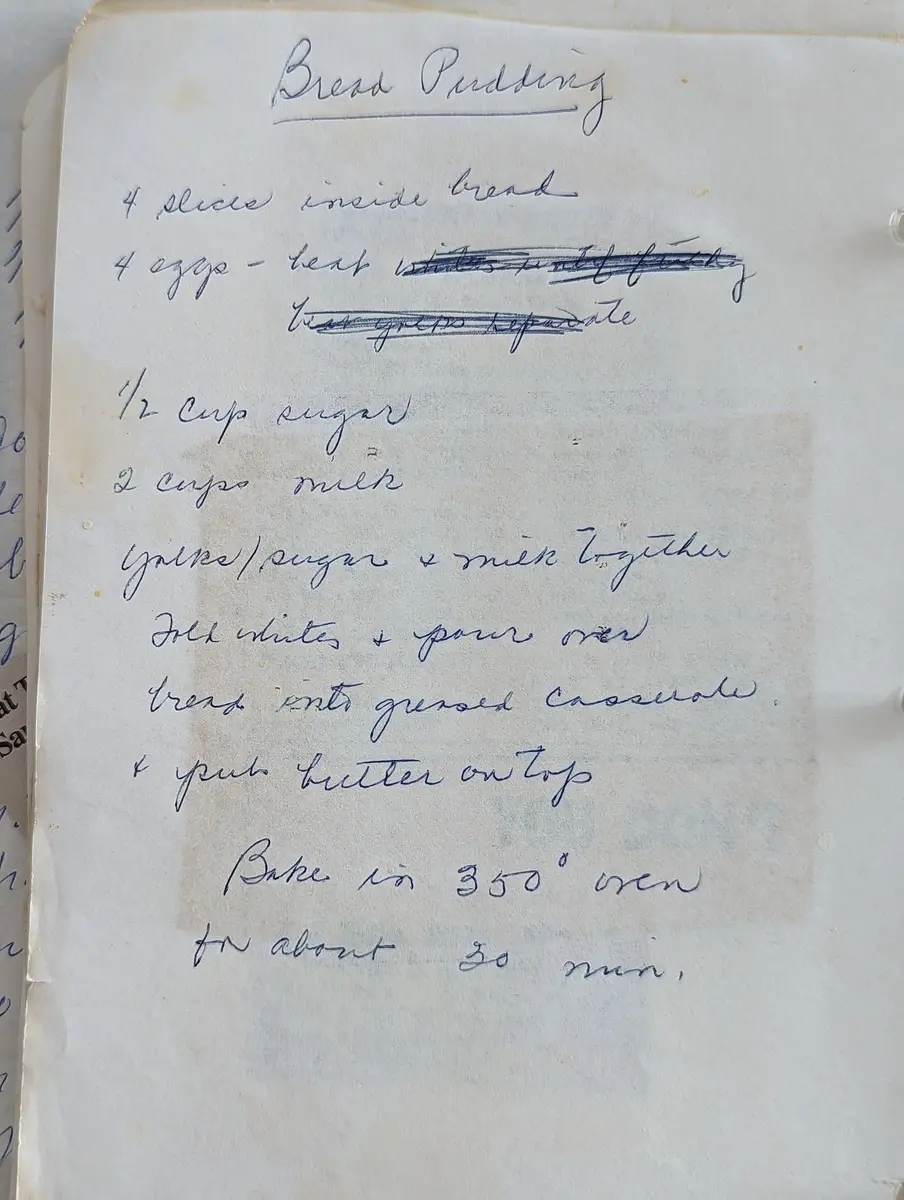 Bread Pudding
4 slices inside bread
4 eggs - beat whites until frothy
beat yolks separate
1/2 cup sugar
2 cups milk
yolks/sugar & milk together
Fold whites & pour over
bread into greased casserole
& put butter on top
Bake in 350° oven
for about 30 min.